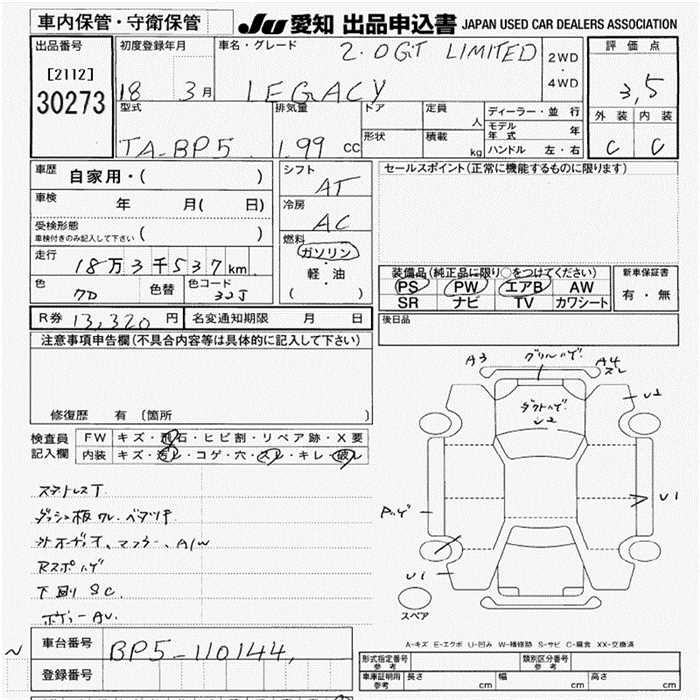 車内保管・守衛保管
JU 愛知 出品申込書 JAPAN USED CAR DEALERS ASSOCIATION
出品番号
[2112]
30273
初度登録年月
18 3月
車名・グレード
2.0GT LIMITED
LEGACY
2WD
・
4WD
評価点
3,5
外装 内装
C C
型式
TA-BP5
排気量
1.99 cc
ドア
定員
人
形状
積載
kg
ディーラー・並行
モデル年式 年
ハンドル 左・右
車歴
自家用・( )
車検
年 月( 日)
受検形態
車検付きのみ記入して下さい ( )
走行
18万3千537km
色
色替
色コード
32J
シフト
AT
冷房
AC
燃料
ガソリン
・
軽・油
( )
セールスポイント(正常に機能するものに限ります)
装備品(純正品に限り○をつけてください)
PS PW エアB AW
SR ナビ TV カワシート
新車保証書
有・無
後日品
R券 13,320 円
名変通知期限 月 日
注意事項申告欄(不具合内容等は具体的に記入して下さい)
修復歴 有 〔箇所 〕
検査員
記入欄
FW キズ・飛石・ヒビ割・リペア跡・X要
内装 キズ・汚レ・コゲ・穴・スレ・キレ・破レ
ステトレスT
ダッシュ板ワレ.ベタツキ
社外オーディオ、マフラー、A/W
Rスポハゲ
下回りSC
ボディーAU.
A3
グリルハゲ
A4
スレ
U2
ダクトハゲ
U2
U1
U1
スペア
A-キズ E-エクボ U-凹み W-補修跡 S-サビ C-腐食 XX-交換済
車台番号
BP5-110144
登録番号
形式指定番号
参考
類別区分番号
参考
車庫証明用
参考
長さ cm
幅 cm
高さ cm